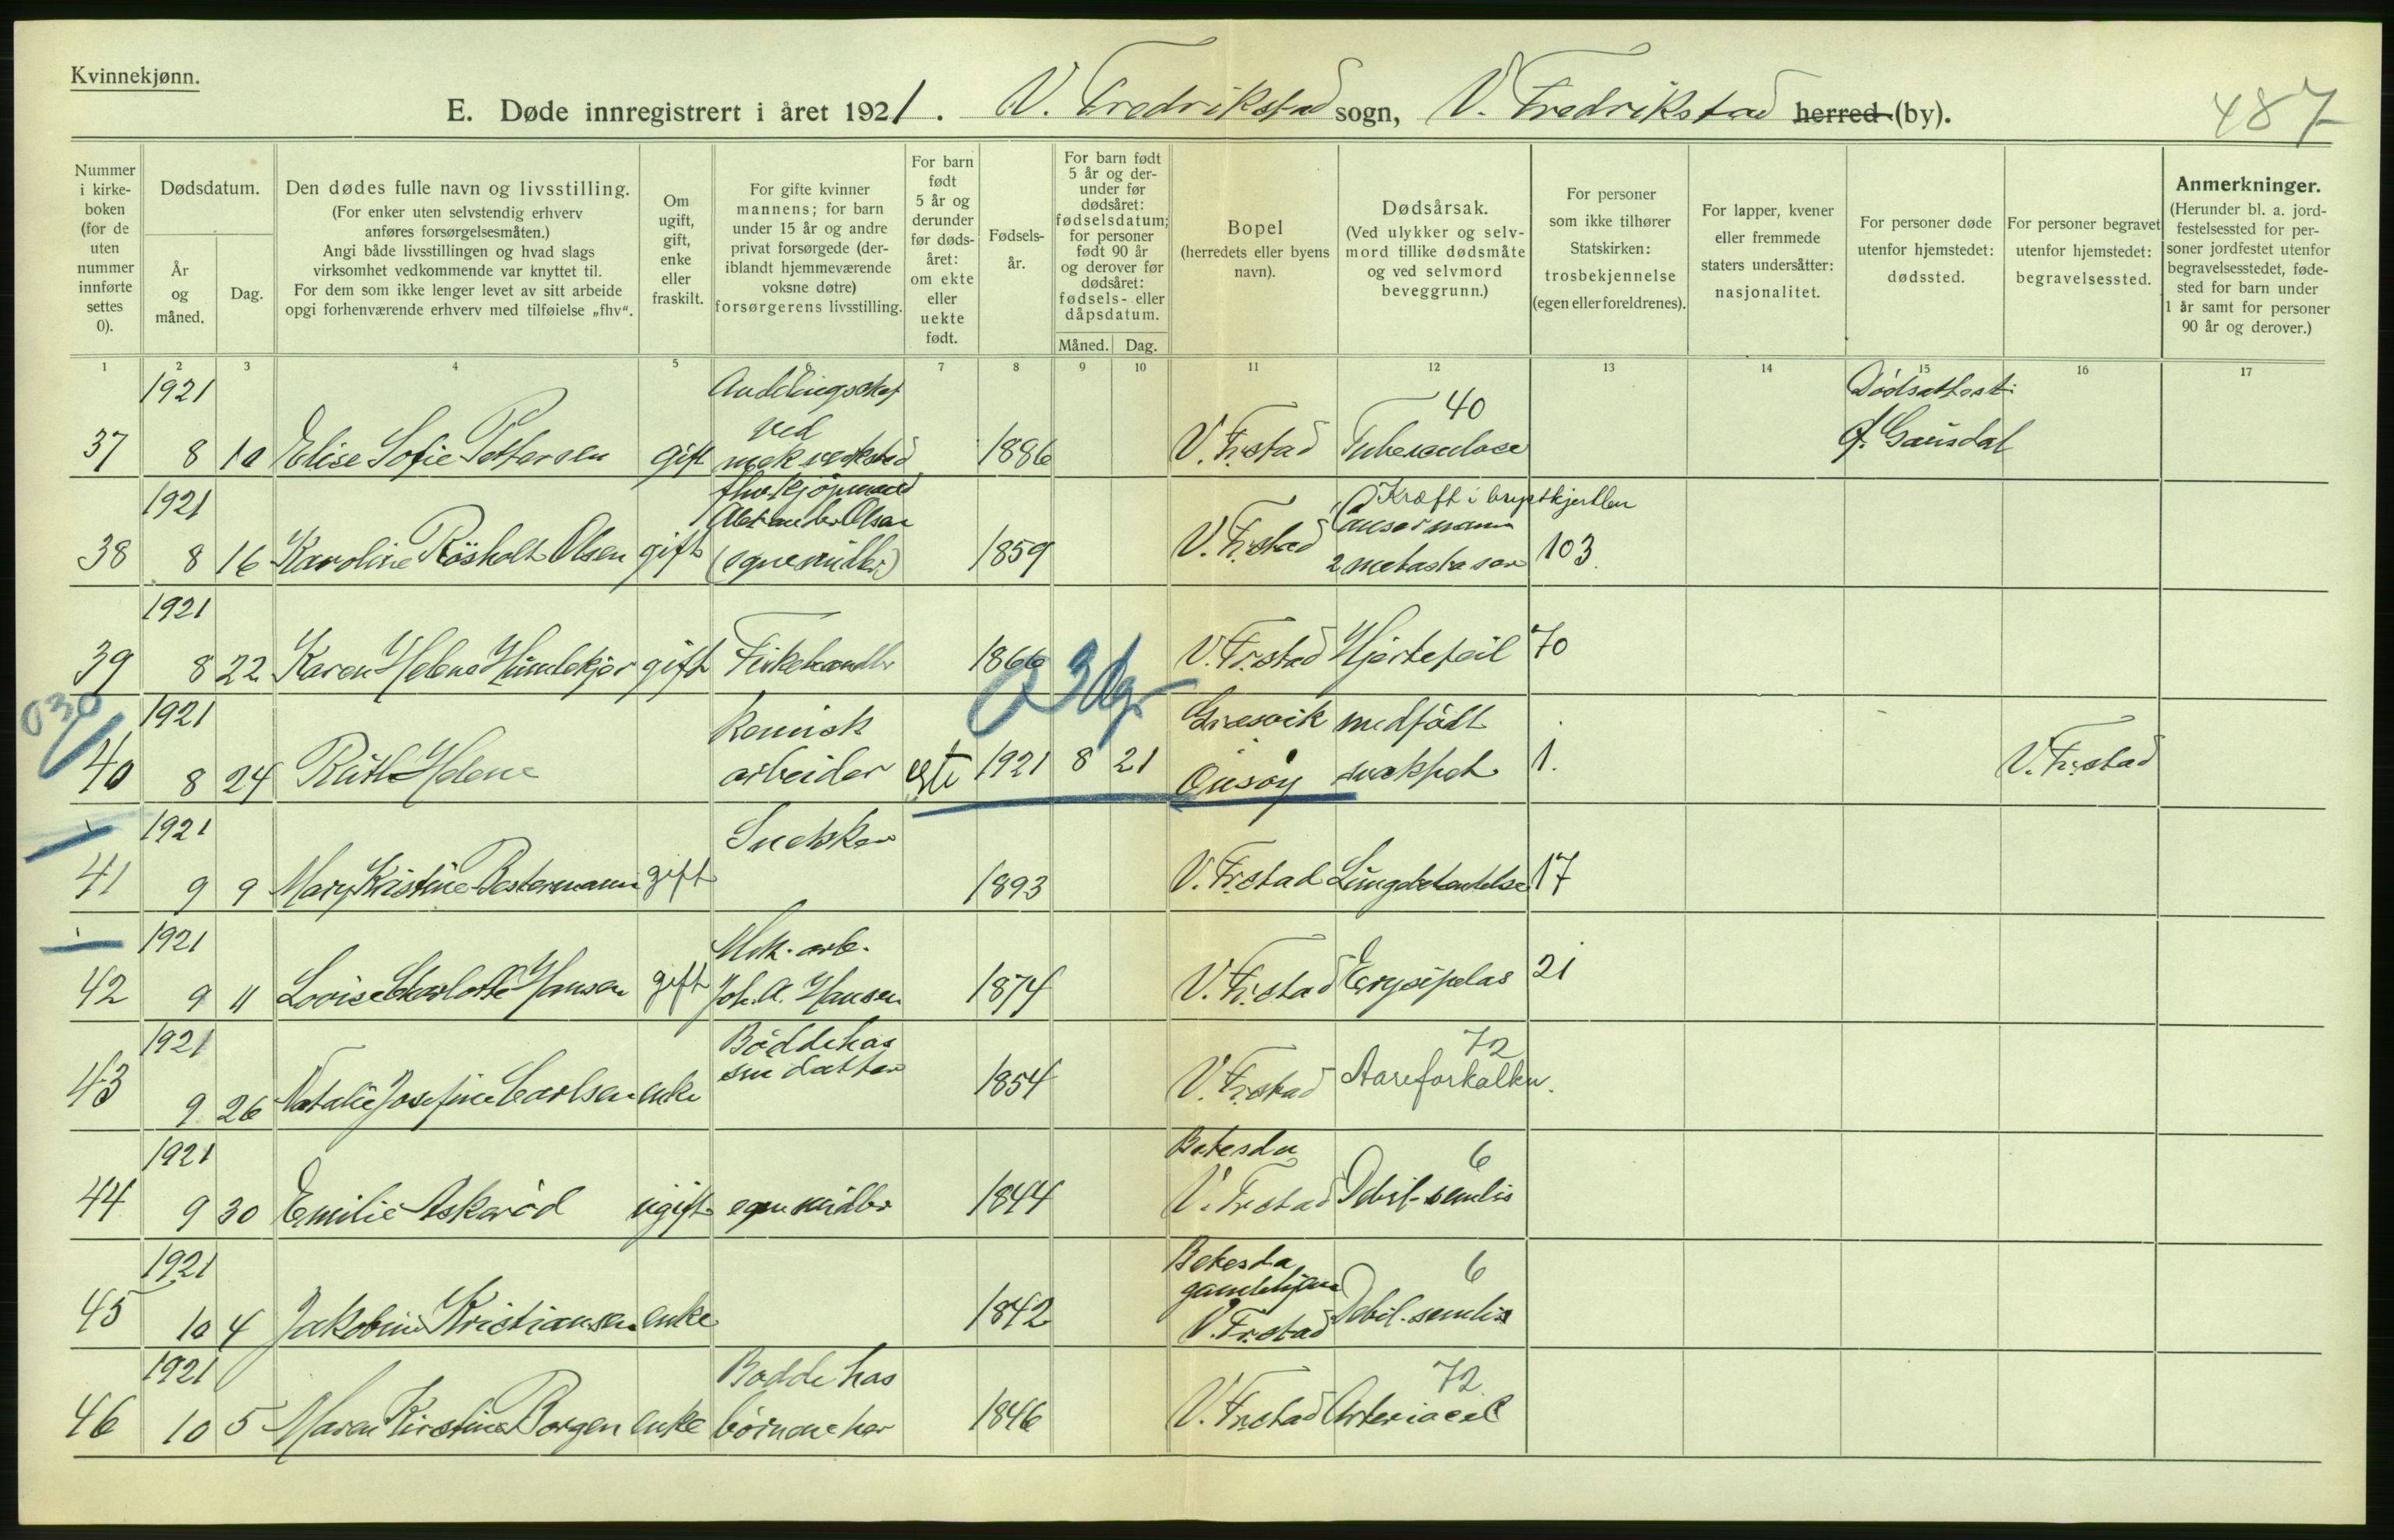 Kvinnekjønn.
E. Døde innregistrert i året 1921. V. Fredrikstad sogn, V. Fredrikstad herred (by).
487
Nummer i kirkeboken (for de uten nummer innførte settes 0).
Dødsdatum.
År og måned.
Dag.
Den dødes fulle navn og livsstilling.
(For enker uten selvstendig erhverv anføres forsørgelsesmåten.)
Angi både livsstillingen og hvad slags virksomhet vedkommende var knyttet til.
For dem som ikke lenger levet av sitt arbeide opgi forhenværende erhverv med tilføielse „fhv“.
Om ugift, gift, enke eller fraskilt.
For gifte kvinner mannens; for barn under 15 år og andre privat forsørgede (deriblandt hjemmeværende voksne døtre) forsørgerens livsstilling.
For barn født 5 år og derunder før dødsåret: om ekte eller uekte født.
Fødselsår.
For barn født 5 år og derunder før dødsåret: fødselsdatum; for personer født 90 år og derover før dødsåret: fødsels- eller dåpsdatum.
Måned. Dag.
Bopel (herredets eller byens navn).
Dødsårsak.
(Ved ulykker og selvmord tillike dødsmåte og ved selvmord beveggrunn.)
For personer som ikke tilhører Statskirken: trosbekjennelse (egen eller foreldrenes).
For lapper, kvener eller fremmede staters undersåtter: nasjonalitet.
For personer døde utenfor hjemstedet: dødssted.
For personer begravet utenfor hjemstedet: begravelsessted.
Anmerkninger.
(Herunder bl. a. jordfestelsessted for personer jordfestet utenfor begravelsesstedet, fødested for barn under 1 år samt for personer 90 år og derover.)
1 2 3 4 5 6 7 8 9 10 11 12 13 14 15 16 17
1921 40 Dødsattest:
ved
37 8 10 Elise Sofie Pettersen gift mek verksted 1886 V. Fr.stad Tuberculose Gausdal
1921 fhv. kjøpmand Kræft i brystkjertlen
Alexander Olsen
38 8 16 Karoline Røsholt Olsen gift (egne midler) 1859 V. Fr.stad 2 metastaser 103
1921
39 8 22 Karen Helene gift Fiskehandler 1866 V. Fr.stad Hjertefeil 70
030 03 dgr
1921 Kemisk Gresvik medfødt
40 8 24 Ruth Helene arbeider ekte 1921 8 21 Onsøy svakhet 1. V. Fr.stad
1921 Snekker
41 9 9 Mary Kristine Bestermann gift 1893 V. Fr.stad Lungebetendelse 17
1921 Mek. arb.
42 9 11 Lovise Charlotte Hansen gift Joh. A. Hansen 1874 V. Fr.stad Erysipelas 21
1921 Bodde hos 72
sin datter
43 9 26 Natalie Josefine Carlsen enke 1854 V. Fr.stad Aareforkalkn.
1921 Betesda 6
44 9 30 Emilie Askerød ugift egne midler 1844 V. Fr.stad Debil. senilis
1921 Betesda 6
gamlehjem
45 10 4 Jakobine Kristiansen enke 1842 V. Fr.stad Debil. senilis
1921 Bodde hos 72
46 10 5 Maren Kirstine Borgen enke børnene her 1846 V. Fr.stad